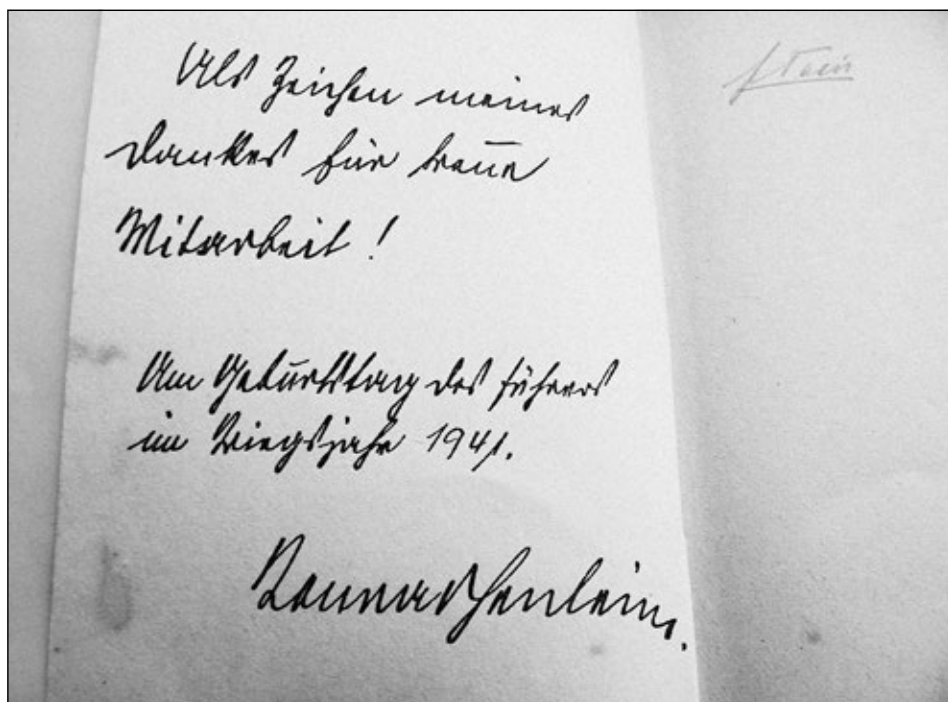 Als Zeichen meines
Dankes für treue
Mitarbeit!
Am Geburtstag des Führers
im Kriegsjahr 1941.
Konrad Henlein.